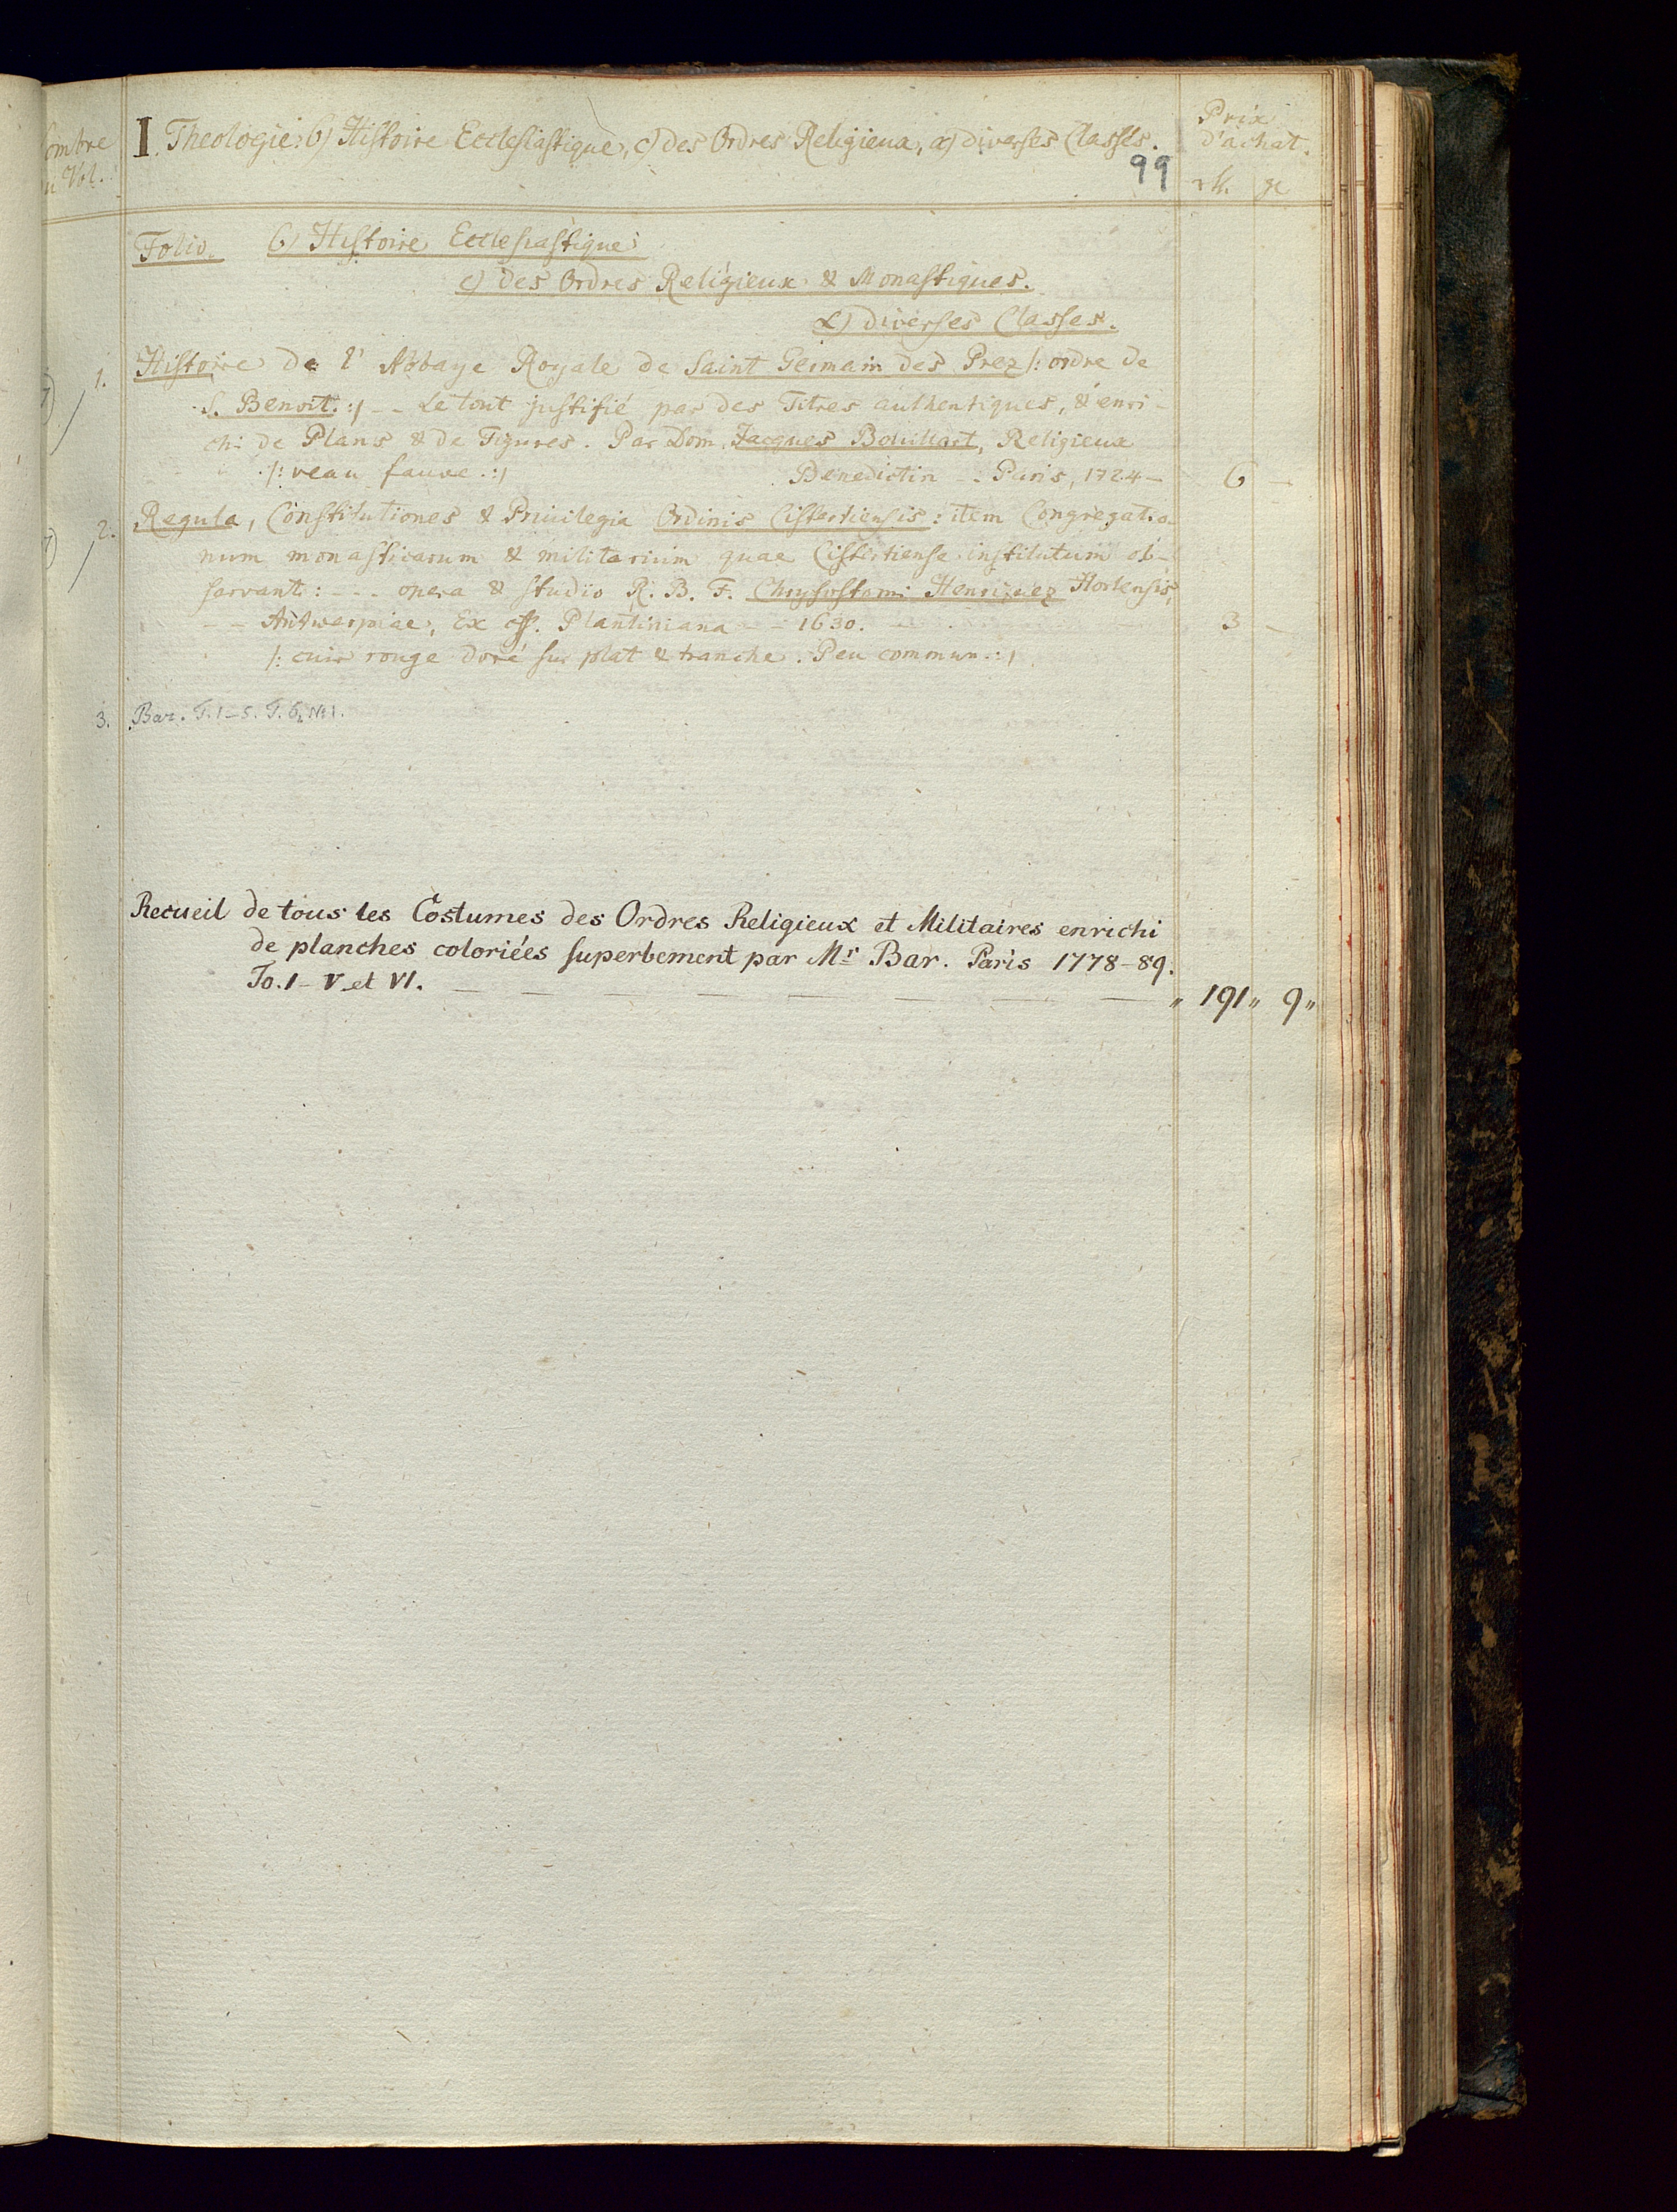 I. Theologie: b) Histoire Ecclesiastique, c) des Ordres Religieux, α) diverses Classes.
99
Prix
d'achat.
rtl. gr
Folio. b) Histoire Ecclesiastique:
c) des Ordres Religieux & Monastiques.
α) diverses Classes.
1. Histoire de l' Abbaye Royale de Saint Germain des Prez /: ordre de
S. Benoit. :/ -- Le tout justifié par des Titres authentiques, & enri-
chi de Plans & de Figures. Par Dom. Jacques Bouillart, Religieux
/: veau fauve. :/ Benedictin -- Paris, 1724 — 6 —
2. Regula, Constitutiones & Privilegia Ordinis Cisterciensis: item Congregatio-
num monasticarum & militarium quae Cisterciense institutum ob-
servant: --- opera & studio R. B. F. Chrysostomi Henriquez Hortensis,
-- Antwerpiae, Ex off. Plantiniana -- 1630. 3 —
/: cuir rouge doré sur plat & tranche. Peu commun. :/
3. Bar. T. 1–5. T. 6, No 1.
Recueil de tous les Costumes des Ordres Religieux et Militaires enrichi
de planches coloriées superbement par Mr Bar. Paris 1778–89.
To. I – V et VI. — — — — — — — — „ 191 „ 9 „